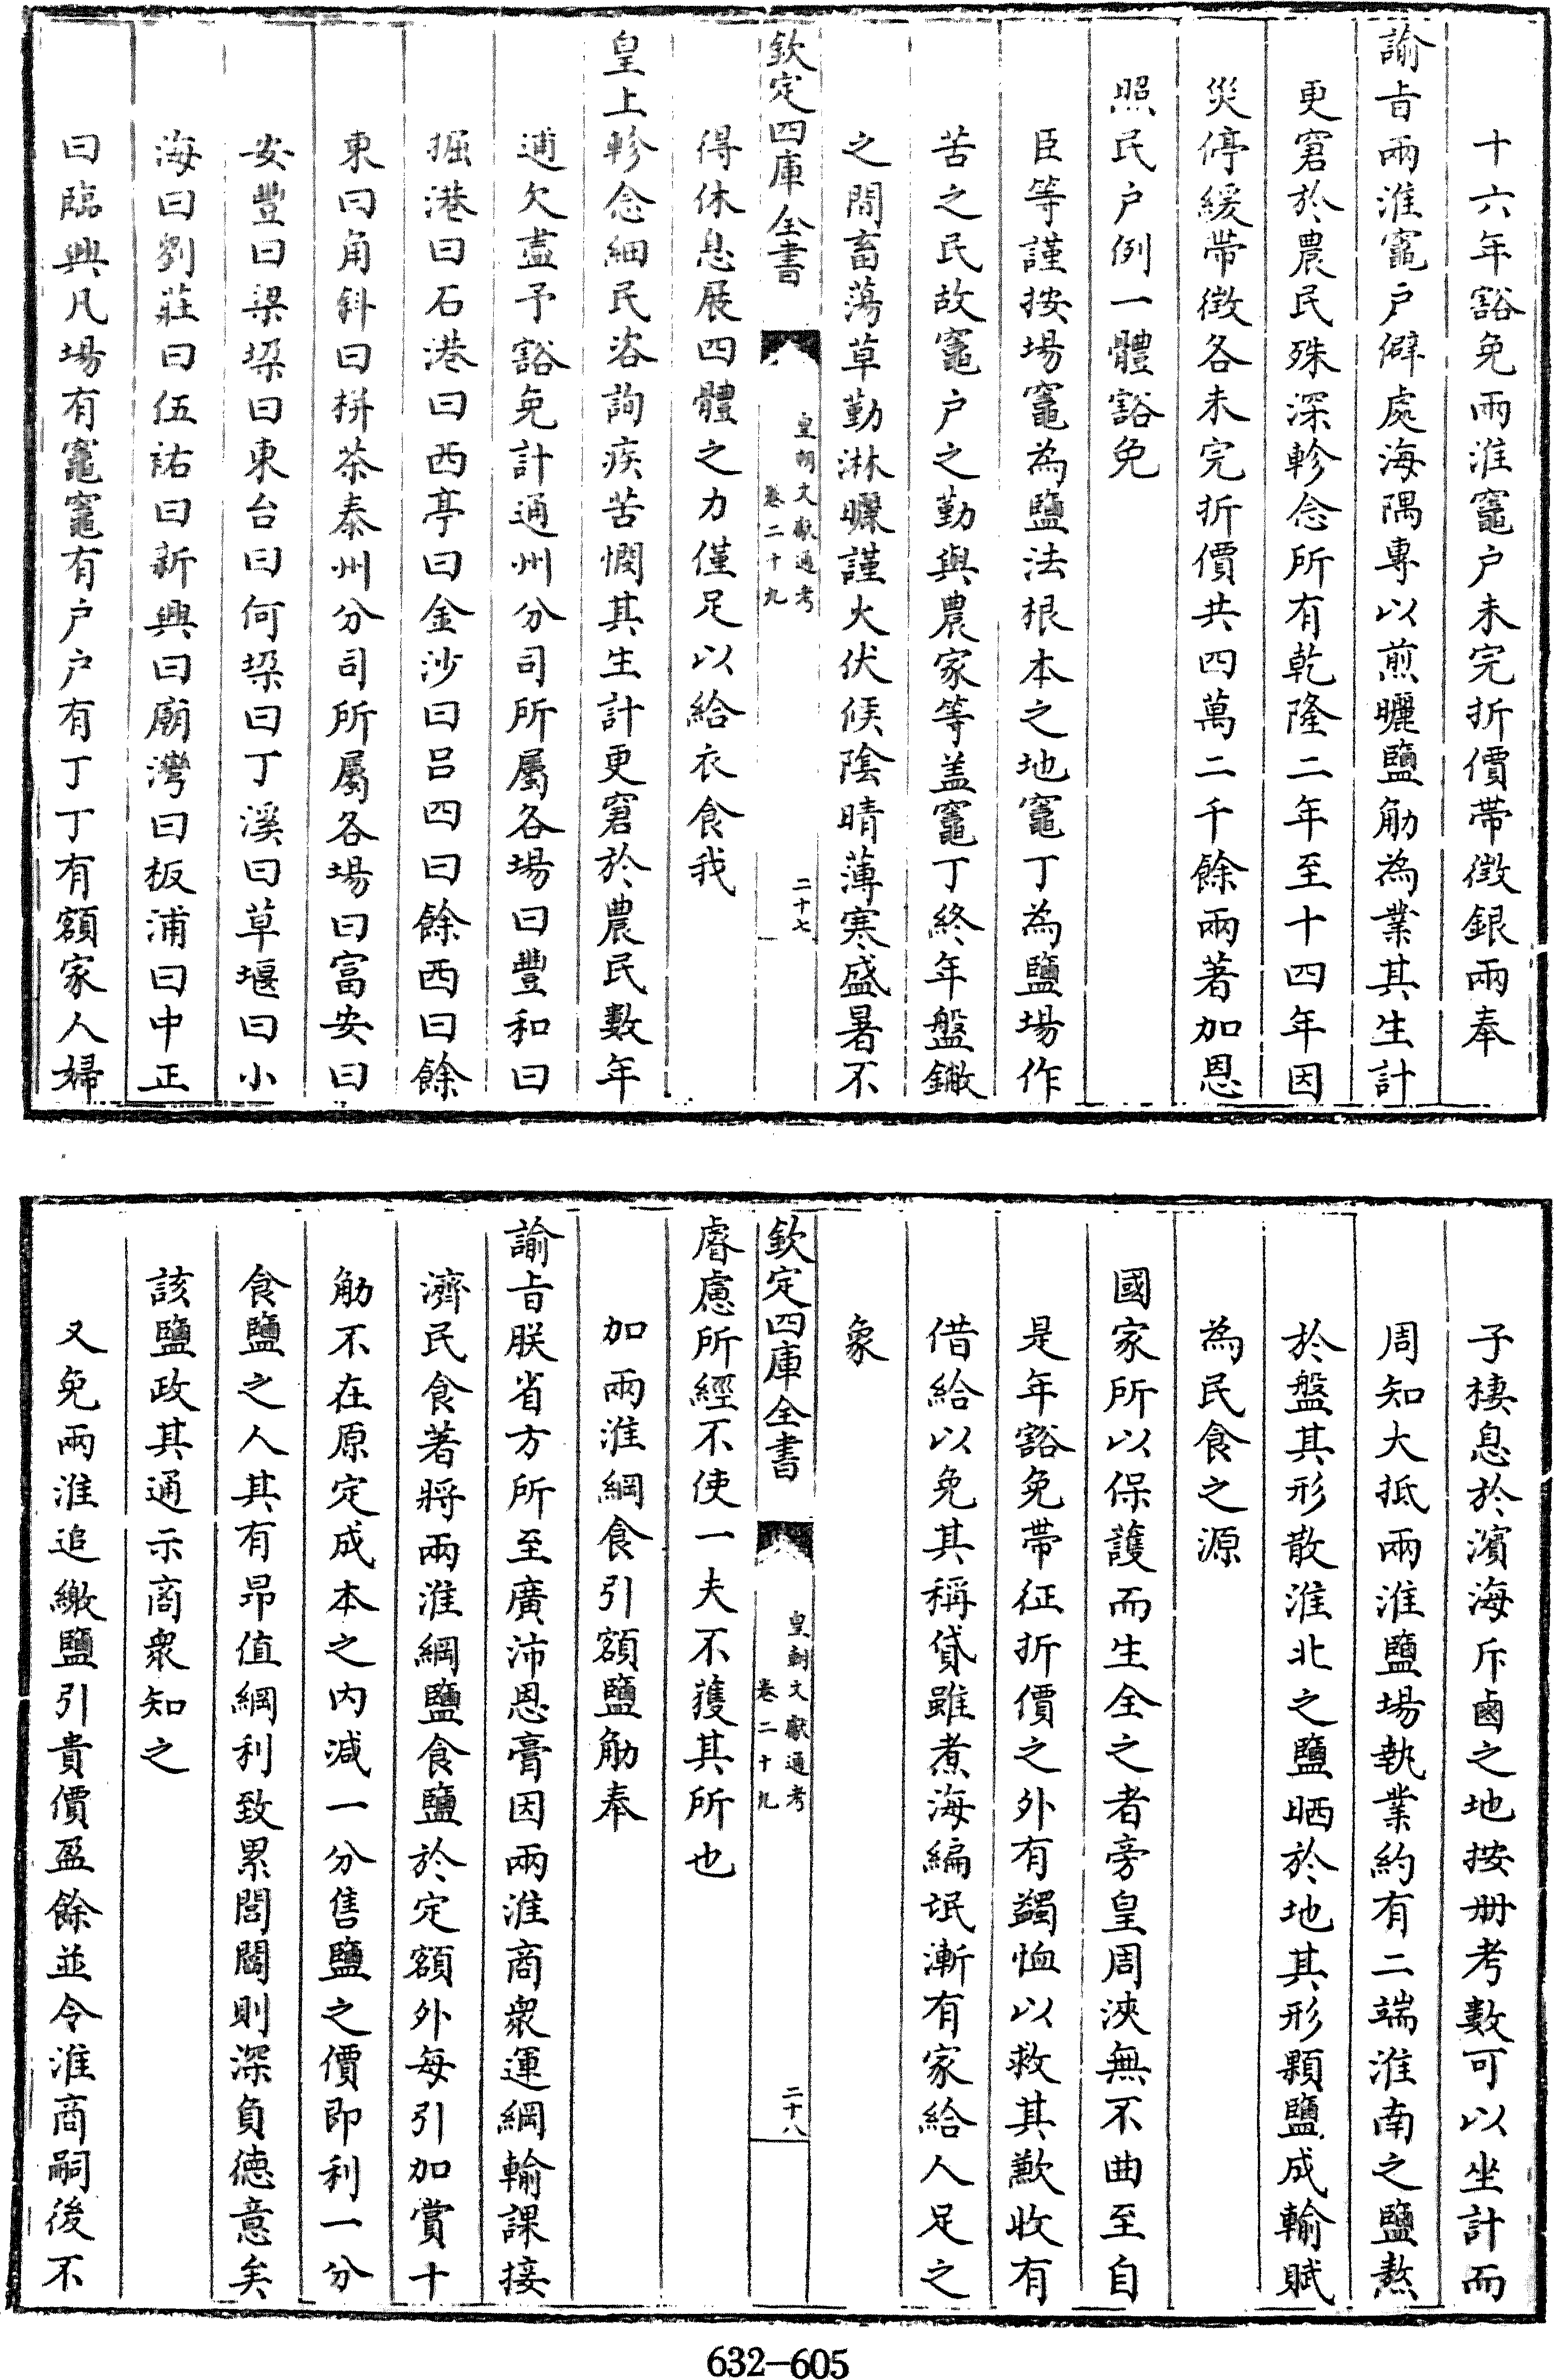 十六年豁免兩淮竈户未完折價帶徵銀兩奉
諭旨兩淮竈户僻處海隅專以煎曬鹽觔為業其生計
更窘於農民殊深軫念所有乾隆二年至十四年因
災停緩帶徵各未完折價共四萬二千餘兩著加恩
照民户例一體豁免
臣等謹按場竈為鹽法根本之地竈丁為鹽場作
苦之民故竈户之勤與農家等盖竈丁終年盤𨫼
之間畜蕩草勤淋曬謹火伏候陰晴薄寒盛暑不
欽定四庫全書
皇朝文獻通考
卷二十九
二十七
得休息展四體之力僅足以給衣食我
皇上軫念細民咨詢疾苦憫其生計更窘於農民數年
逋欠盡予豁免計通州分司所屬各場曰豐和曰
掘港曰石港曰西亭曰金沙曰吕四曰餘西曰餘
東曰角斜曰栟茶泰州分司所屬各場曰富安曰
安豐曰梁垛曰東台曰何垛曰丁溪曰草堰曰小
海曰劉莊曰伍祐曰新興曰廟灣曰板浦曰中正
曰臨興凡場有竈竈有户户有丁丁有額家人婦
子棲息於濱海斥鹵之地按冊考數可以坐計而
周知大抵兩淮鹽場執業約有二端淮南之鹽熬
於盤其形散淮北之鹽晒於地其形顆鹽成輸賦
為民食之源
國家所以保護而生全之者旁皇周浹無不曲至自
是年豁免帶征折價之外有蠲恤以救其歉收有
借給以免其稱貸雖煮海編氓漸有家給人足之
象
欽定四庫全書
皇朝文獻通考
卷二十九
二十八
睿慮所經不使一夫不獲其所也
加兩淮綱食引額鹽觔奉
諭旨朕省方所至廣沛恩膏因兩淮商衆運綱輸課接
濟民食著將兩淮綱鹽食鹽於定額外每引加賞十
觔不在原定成本之内減一分售鹽之價即利一分
食鹽之人其有昂值綱利致累閭閻則深負德意矣
該鹽政其通示商衆知之
又免兩淮追繳鹽引貴價盈餘並令淮商嗣後不
632—605